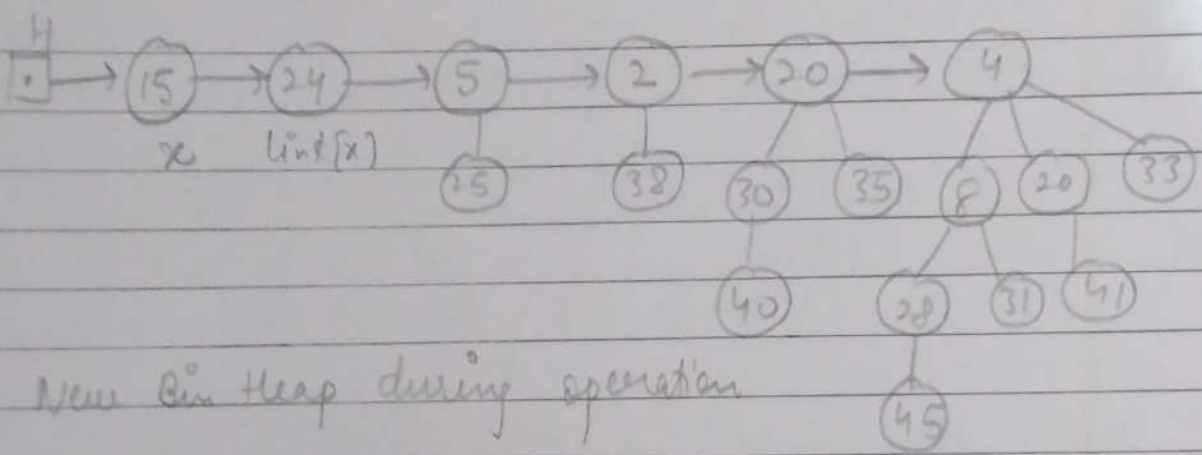 H
15 24 5 2 20 4
x link[x]
25 38 30 35 8 20 33
40 28 31 41
New Bin Heap during operation
45